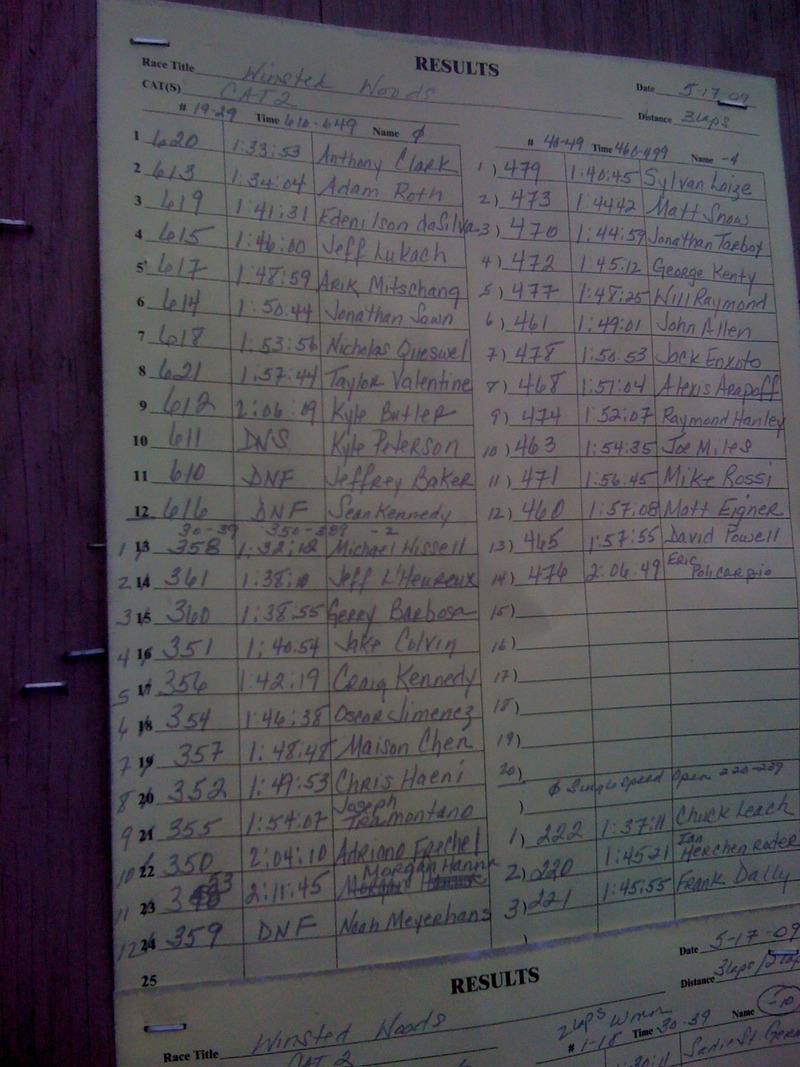 RESULTS
Race Title Winsted Woods Date 5-17-09
CAT(S) CAT 2 Distance 3 Laps
# 19-29 Time 610-649 Name ϕ
1 620 1:33:53 Anthony Clark
2 613 1:34:04 Adam Roth
3 619 1:41:31 Edenilson daSilva
4 615 1:46:00 Jeff Lukach
5 617 1:48:59 Arik Mitschang
6 614 1:50:44 Jonathan Sawn
7 618 1:53:56 Nicholas
8 621 1:57:44 Taylor Valentine
9 612 2:06:09 Kyle Butler
10 611 DNS Kyle Peterson
11 610 DNF Jeffrey Baker
12 616 DNF Sean Kennedy
30-39 350-389 -2
1 13 358 1:32:12 Michael Wissell
2 14 361 1:38:10 Jeff L'Heureux
3 15 360 1:38:55 Gerry Barbosa
4 16 351 1:40:54 Jake Colvin
5 17 356 1:42:19 Craig Kennedy
6 18 354 1:46:38 Oscar Jimenez
7 19 357 1:48:48 Maison Chen
8 20 352 1:49:53 Chris Haeni
9 21 355 1:54:07 Joseph Tramontano
10 22 350 2:04:10 Adriano Frechel
11 23 353 2:11:45 Morgan Hanna
12 24 359 DNF Noah Meyerhans
25
# 40-49 Time 460-499 Name -4
1) 479 1:40:45 Sylvan Loize
2) 473 1:4442 Matt Snow
3) 470 1:44:59 Jonathan Tarbox
4) 472 1:45:12 George Kenty
5) 477 1:48:25 Will Raymond
6) 461 1:49:01 John Allen
7) 478 1:50:53 Jack Enxoto
8) 468 1:51:04 Alexis Arapoff
9) 474 1:52:07 Raymond Hanley
10) 463 1:54:35 Joe Miles
11) 471 1:56:45 Mike Rossi
12) 460 1:57:08 Matt Eigner
13) 465 1:57:55 David Powell
14) 476 2:06:49 Eric Policarpio
15)
16)
17)
18)
19)
20)
ϕ Single speed Open 220-239
)
1) 222 1:37:11 Chuck Leach
2) 220 1:45:21 Ian Herchenroder
3) 221 1:45:55 Frank Dally
)
RESULTS
Date 5-17-09
Distance 3 laps/2 laps
Race Title Winsted Woods
2 laps
CAT 2 # 1-18 Time 30-39 Name -10